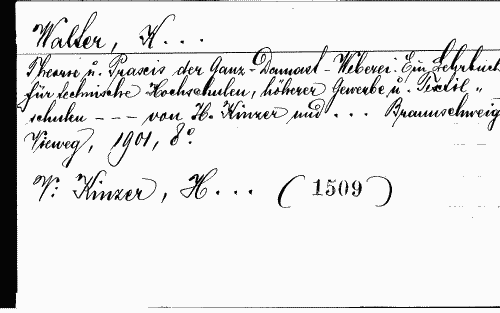 Walter, K...
Theorie u. Praxis der Ganz-Damast-Weberei. Ein Lehrbuch
für technische Hochschulen, höherer Gewerbe u. Textil-
schulen --- von H. Kinzer und ... Braunschweig
Vieweg, 1901, 8°.
V: Kinzer, H... (1509)